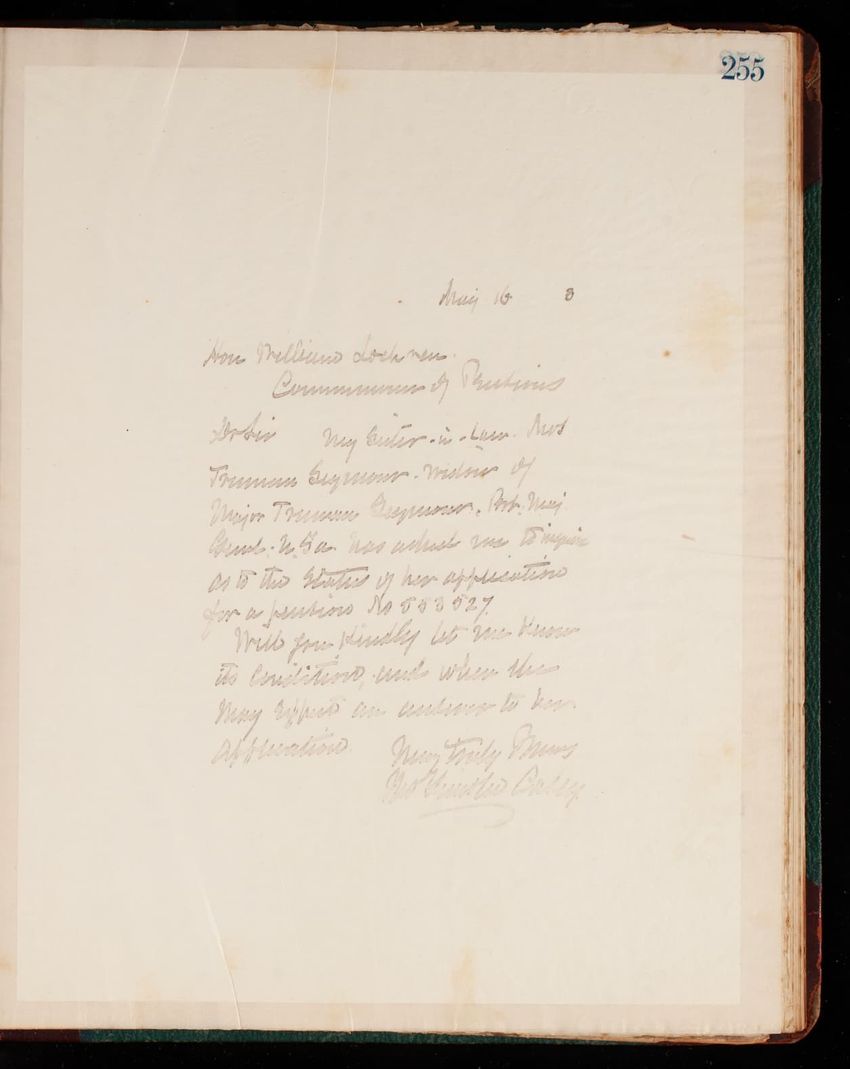 255
May 16 3
Hon William Lochren
Commissioner of Pensions
Dr Sir My Sister-in-law. Mrs
Truman Seymour. widow of
Major Truman Seymour, Bvt. Maj
Genl. U.S.a. has asked me to inquire
as to the Status of her application
for a pension No 553527.
Will you Kindly let me know
its Condition, and when she
may expect an answer to her
application.
Very Truly Yours
Thos Lincoln Casey.